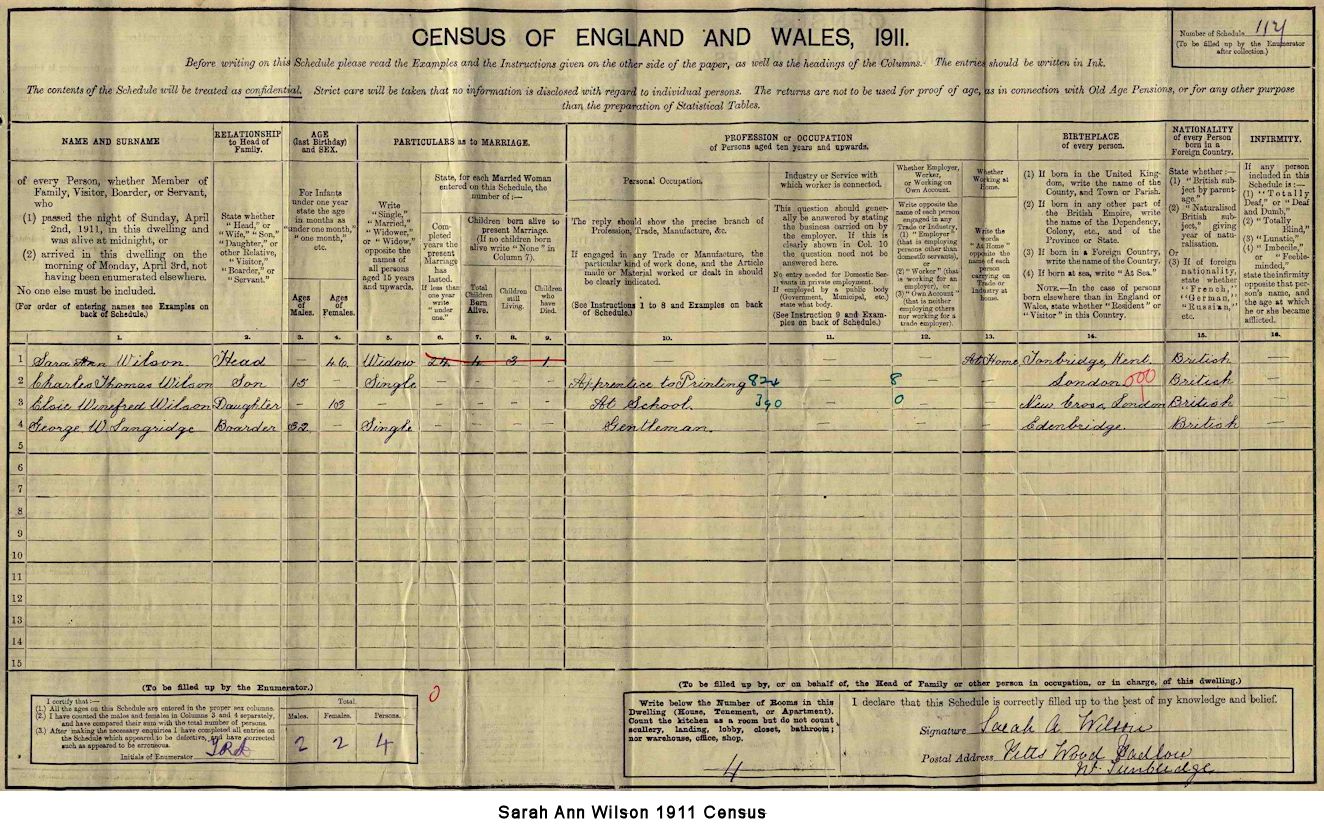 Number of Schedule 114
(To be filled up by the Enumerator after collection.)
CENSUS OF ENGLAND AND WALES, 1911.
Before writing on this Schedule please read the Examples and the Instructions given on the other side of the paper, as well as the headings of the Columns. The entries should be written in Ink.
The contents of the Schedule will be treated as confidential. Strict care will be taken that no information is disclosed with regard to individual persons. The returns are not to be used for proof of age, as in connection with Old Age Pensions, or for any other purpose
than the preparation of Statistical Tables.
NAME AND SURNAME
RELATIONSHIP to Head of Family.
AGE (last Birthday) and SEX.
PARTICULARS as to MARRIAGE.
PROFESSION or OCCUPATION of Persons aged ten years and upwards.
BIRTHPLACE of every person.
NATIONALITY of every Person born in a Foreign Country.
INFIRMITY.
of every Person, whether Member of Family, Visitor, Boarder, or Servant, who
(1) passed the night of Sunday, April 2nd, 1911, in this dwelling and was alive at midnight, or
(2) arrived in this dwelling on the morning of Monday, April 3rd, not having been enumerated elsewhere.
No one else must be included.
(For order of entering names see Examples on back of Schedule.)
State whether "Head," or "Wife," "Son," "Daughter," or other Relative, "Visitor," "Boarder," or "Servant."
For Infants under one year state the age in months as "under one month," "one month," etc.
Ages of Males.
Ages of Females.
Write "Single," "Married," "Widower," or "Widow," opposite the names of all persons aged 15 years and upwards.
State, for each Married Woman entered on this Schedule, the number of:—
Completed years the present Marriage has lasted. If less than one year write "under one."
Children born alive to present Marriage. (If no children born alive write "None" in Column 7).
Total Children Born Alive.
Children still Living.
Children who have Died.
Personal Occupation.
The reply should show the precise branch of Profession, Trade, Manufacture, &c.
If engaged in any Trade or Manufacture, the particular kind of work done, and the Article made or Material worked or dealt in should be clearly indicated.
(See Instructions 1 to 8 and Examples on back of Schedule.)
Industry or Service with which worker is connected.
This question should generally be answered by stating the business carried on by the employer. If this is clearly shown in Col. 10 the question need not be answered here.
No entry needed for Domestic Servants in private employment. If employed by a public body (Government, Municipal, etc.) state what body.
(See Instruction 9 and Examples on back of Schedule.)
Whether Employer, Worker, or Working on Own Account.
Write opposite the name of each person engaged in any Trade or Industry, (1) "Employer" (that is employing persons other than domestic servants), or (2) "Worker" (that is working for an employer), or (3) "Own Account" (that is neither employing others nor working for a trade employer).
Whether Working at Home.
Write the words "At Home" opposite the name of each person carrying on Trade or Industry at home.
(1) If born in the United Kingdom, write the name of the County, and Town or Parish.
(2) If born in any other part of the British Empire, write the name of the Dependency, Colony, etc., and of the Province or State.
(3) If born in a Foreign Country, write the name of the Country.
(4) If born at sea, write "At Sea."
NOTE.—In the case of persons born elsewhere than in England or Wales, state whether "Resident" or "Visitor" in this Country.
State whether :—
(1) "British subject by parentage."
(2) "Naturalised British subject," giving year of naturalisation.
Or
(3) If of foreign nationality, state whether "French," "German," "Russian," etc.
If any person included in this Schedule is :—
(1) "Totally Deaf," or "Deaf and Dumb,"
(2) "Totally Blind,"
(3) "Lunatic,"
(4) "Imbecile," or "Feeble-minded,"
state the infirmity opposite that person's name, and the age at which he or she became afflicted.
1. 2. 3. 4. 5. 6. 7. 8. 9. 10. 11. 12. 13. 14. 15. 16.
1 Sara Ann Wilson Head – 46 Widow 24 4 3 1 — — — At Home Tonbridge, Kent British —
2 Charles Thomas Wilson Son 15 – Single – – – – Apprentice to Printing 824 — 8 — — London 000 British —
3 Elsie Winefred Wilson Daughter – 13 – – – – – At School. 390 — 0 — — New Cross, London British —
4 George W. Langridge Boarder 52 – Single – – – – Gentleman. — — — Edenbridge. British —
5
6
7
8
9
10
11
12
13
14
15
(To be filled up by the Enumerator.)
I certify that :—
(1.) All the ages on this Schedule are entered in the proper sex columns.
(2.) I have counted the males and females in Columns 3 and 4 separately, and have compared their sum with the total number of persons.
(3.) After making the necessary enquiries I have completed all entries on the Schedule which appeared to be defective, and have corrected such as appeared to be erroneous.
Initials of Enumerator
Total.
Males. Females. Persons.
2 2 4
0
(To be filled up by, or on behalf of, the Head of Family or other person in occupation, or in charge, of this dwelling.)
Write below the Number of Rooms in this Dwelling (House, Tenement, or Apartment). Count the kitchen as a room but do not count scullery, landing, lobby, closet, bathroom; nor warehouse, office, shop.
4
I declare that this Schedule is correctly filled up to the best of my knowledge and belief.
Signature Sarah A. Wilson
Postal Address Pitts Wood Hadlow
Nr. Tunbridge
Sarah Ann Wilson 1911 Census